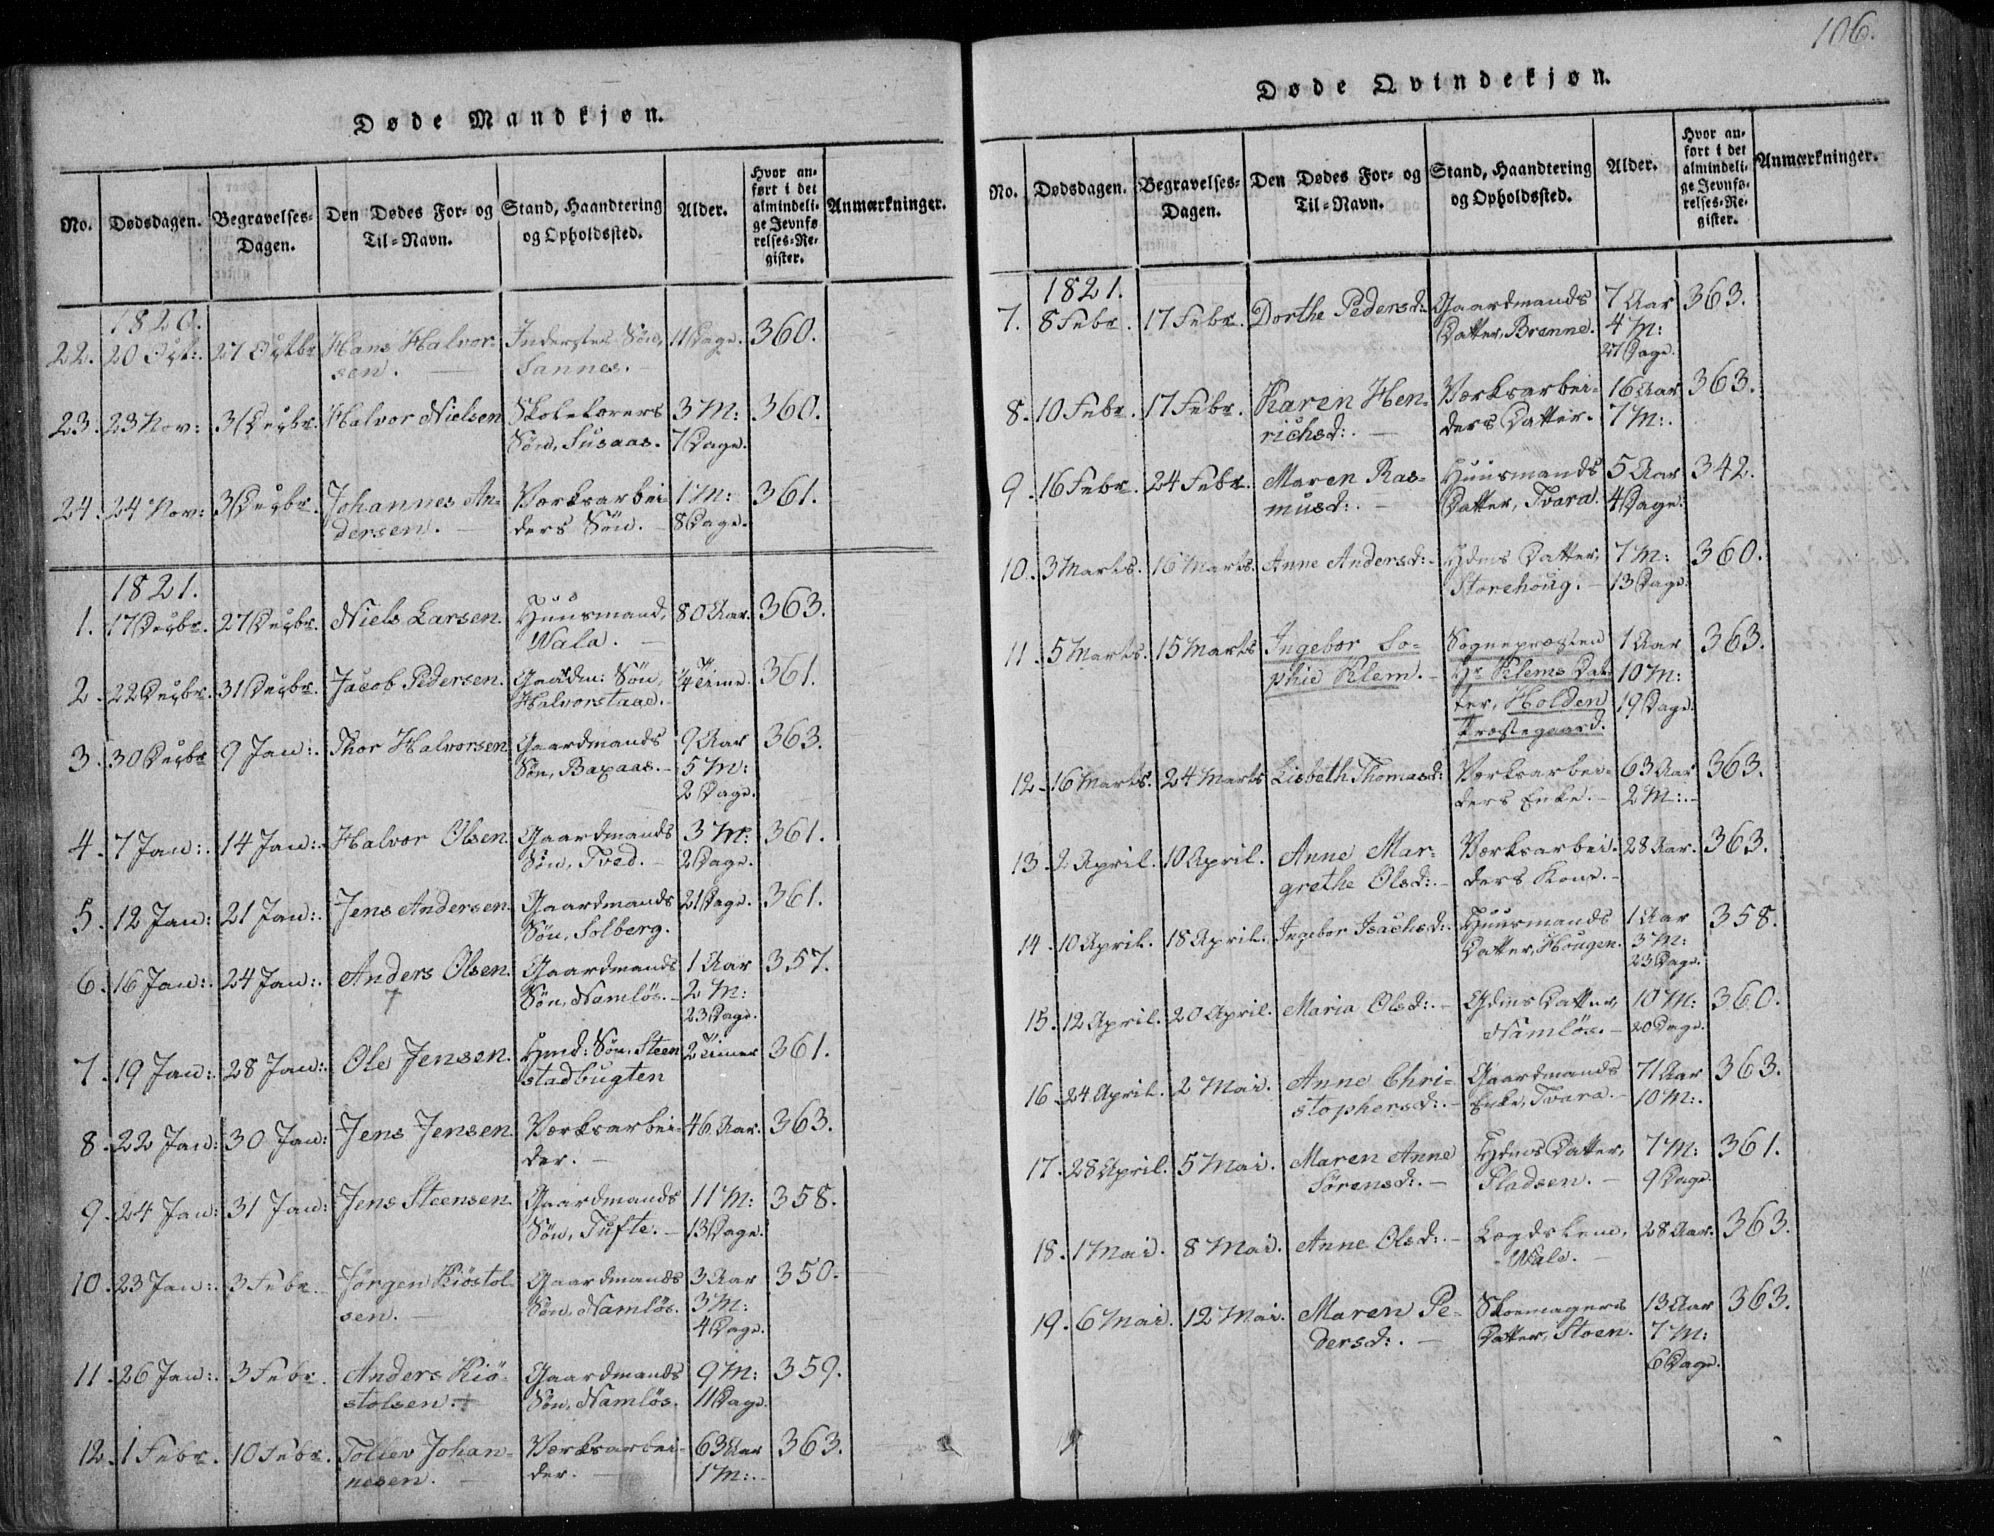 106.
Døde Mandkjøn.
No. Dødsdagen. Begravelses-Dagen. Den Dødes For- og Til-Navn. Stand, Haandtering og Opholdssted. Alder. Hvor anført i det almindelige Jevnførelses-Register. Anmærkninger.
1820.
22. 20 Octr. 27 Octbr. Hans Halvor- Inderstes Søn, 11 Dage. 360.
sen. Sannes.
23. 23 Nov: 3 Decbr. Halvor Nielsen Skolelærers 3 M: 360.
Søn, Susaas. 7 Dage.
24. 24 Nov: 3 Decbr. Johannes An- Værksarbei- 1 M: 361.
dersen. ders Søn. 8 Dage.
1821.
1. 17 Decbr. 27 Decbr. Niels Larsen. Huusmand, 80 Aar. 363.
Wala.
2. 22 Decbr. 31 Decbr. Jacob Pedersen. Gaardm: Søn, 1/4 Time. 361.
Halvorstaae.
3. 30 Decbr 9 Jan: Thor Halvorsen Gaardmands 9 Aar 363.
Søn, Baxaas. 5 M:
2 Dage.
4. 7 Jan: 14 Jan: Halvor Olsen. Gaardmands 3 M: 361.
Søn, Tved. 2 Dage.
5. 12 Jan: 21 Jan: Jens Andersen. Gaardmands 21 Dage. 361.
Søn, Solberg.
6. 16 Jan: 24 Jan: Anders Olsen. Gaardmands 1 Aar 357.
† Søn, Namløs. 2 M:
23 Dage.
7. 19 Jan: 28 Jan: Ole Jensen. Hmd: Søn, Steen 2 Timer 361.
stadbugten
8. 22 Jan: 30 Jan: Jens Jensen. Værksarbei- 46 Aar. 363.
der.
9. 24 Jan: 31 Jan: Jens Steensen. Gaardmands 11 M: 358.
Søn, Tufte. 13 Dage.
10. 23 Jan: 3 Febr. Jørgen Kiøstol- Gaardmands 3 Aar 350.
sen. Søn, Namløs. 3 M:
4 Dage.
11. 26 Jan: 3 Febr. Anders Kiø- Gaardmands 9 M: 359.
stolsen. † Søn, Namløs. 11 Dage.
12. 1 Febr. 10 Febr. Tollev Johan- Værksarbei- 63 Aar 363.
nesen. der. 1 M:
Døde Qvindekjøn.
No. Dødsdagen. Begravelses-Dagen. Den Dødes For- og Til-Navn. Stand, Haandtering og Opholdssted. Alder. Hvor anført i det almindelige Jevnførelses-Register. Anmærkninger.
1821.
7. 8 Febr. 17 Febr. Dorthe Pedersd: Gaardmands 7 Aar 363.
Datter, Brenne. 4 M:
27 Dage.
8. 10 Febr. 17 Febr. Karen Hen- Værksarbei- 16 Aar 363.
richsd: ders Datter. 7 M:
9. 16 Febr. 24 Febr. Maren Ras- Huusmands 5 Aar 342.
musd: Datter, Tvara. 4 Dage.
10. 3 Marts. 16 Marts. Anne Andersd: Hdms Datter, 7 M: 360.
Storehoug. 13 Dage.
11. 5 Marts. 15 Marts Ingebor So- Sognepræsten 1 Aar 363.
phie Klem. Hr Klems Dat- 10 M:
ter, Holden 19 Dage.
Præstegaard.
12. 16 Marts. 24 Marts Lisbeth Thomasd: Værksarbei- 63 Aar 363.
ders Enke. 2 M:
13. 2 April. 10 April. Anne Mar- Værksarbei- 28 Aar. 363.
grethe Olsd: ders Kone.
14. 10 April. 18 April. Ingebor Isachsd: Huusmands 1 Aar 358.
Datter, Hougen. 3 M:
23 Dage.
15. 12 April. 20 April. Maria Olsd: Gdms Datter, 10 M: 360.
Namløs. 20 Dage.
16. 24 April. 2 Mai. Anne Chri- Gaardmands 71 Aar 363.
stophersd: Enke, Tvara. 10 M:
17. 28 April. 5 Mai. Maren Anne Hdms Datter, 7 M: 361.
Sørensd: Pladsen. 9 Dage.
18. 1 Mai. 8 Mai. Anne Olsd: Lægdslem, 28 Aar. 363.
Wale.
19. 6 Mai. 12 Mai. Maren Pe- Skomagers 13 Aar 363.
dersd: Datter, Stoen. 7 M:
6 Dage.